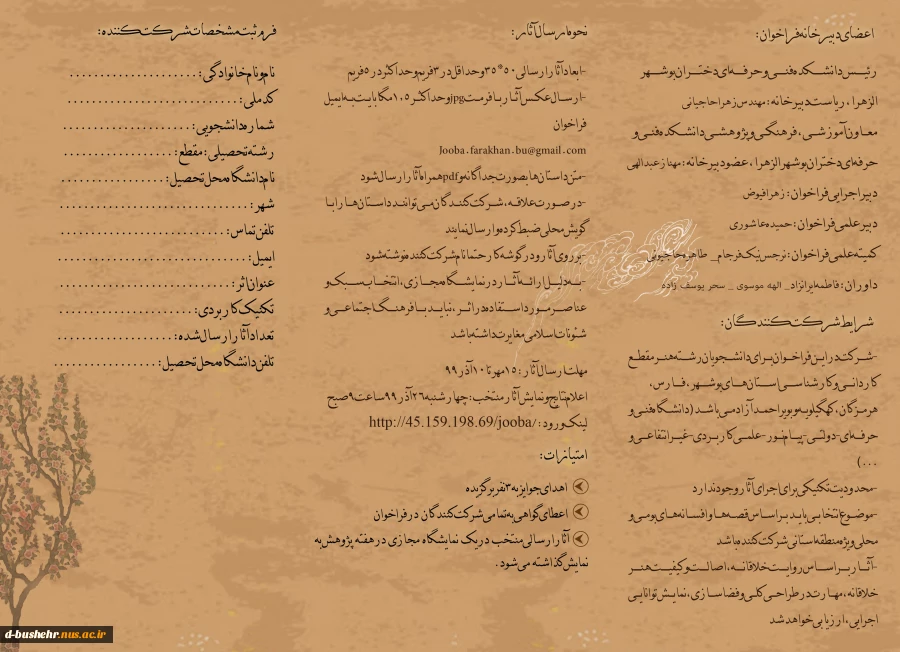 اعضای دبیرخانه فراخوان:
رئیس دانشکده فنی و حرفه ای دختران بوشهر
الزهرا، ریاست دبیرخانه: مهندس زهرا حاجیانی
معاون آموزشی، فرهنگی و پژوهشی دانشکده فنی و
حرفه ای دختران بوشهر الزهرا، عضو دبیرخانه: مهناز عبدالهی
دبیر اجرایی فراخوان: زهرا فیوض
دبیر علمی فراخوان: حمیده عاشوری
کمیته علمی فراخوان: نرجس نیک فرجام _ طاهره حاجیونی
داوران: فاطمه ایرانزاد _ الهه موسوی _ سحر یوسف زاده
شرایط شرکت کنندگان:
-شرکت در این فراخوان برای دانشجویان رشته هنر مقطع
کاردانی و کارشناسی استان های بوشهر، فارس،
هرمزگان، کهگیلویه و بویر احمد آزاد می باشد (دانشگاه فنی و
حرفه ای- دولتی- پیام نور- علمی کاربردی- غیر انتفاعی و
...)
-محدودیت تکنیکی برای اجرای آثار وجود ندارد
-موضوع انتخابی باید بر اساس قصه ها و افسانه های بومی و
محلی ویژه منطقه استانی شرکت کننده باشد
-آثار بر اساس روایت خلاقانه، اصالت و کیفیت هنر
خلاقانه، مهارت در طراحی کلی و فضاسازی، نمایش توانایی
اجرایی، ارزیابی خواهد شد
نحوه ارسال آثار:
-ابعاد آثار ارسالی ۵۰*۳۵ و حداقل در ۳ فریم و حداکثر در ۵ فریم
-ارسال عکس آثار با فرمت jpg و حداکثر ۱.۵ مگابایت به ایمیل
فراخوان
Jooba.farakhan.bu@gmail.com
-متن داستان ها بصورت جداگانه و pdf همراه آثار ارسال شود
-در صورت علاقه، شرکت کنندگان می توانند داستان ها را با
گویش محلی ضبط کرده و ارسال نمایند
-بر روی آثار و در گوشه کار حتما نام شرکت کننده نوشته شود
-به دلیل ارائه آثار در نمایشگاه مجازی، انتخاب سبک و
عناصر مورد استفاده در اثر، نباید با فرهنگ اجتماعی و
شئونات اسلامی مغایرت داشته باشد
مهلت ارسال آثار: ۱۵ مهر تا ۱۰ آذر ۹۹
اعلام نتایج و نمایش آثار منتخب: چهارشنبه ۲۶ آذر ۹۹ ساعت ۹ صبح
لینک ورود: http://45.159.198.69/jooba/
امتیازات:
اهدای جوایز به ۳ نفر برگزیده
اعطای گواهی به تمامی شرکت کنندگان در فراخوان
آثار ارسالی منتخب در یک نمایشگاه مجازی در هفته پژوهش به
نمایش گذاشته می شود.
فرم ثبت مشخصات شرکت کننده:
نام و نام خانوادگی: .....................
کد ملی: ............................
شماره دانشجویی: .....................
رشته تحصیلی: مقطع: ..................
نام دانشگاه محل تحصیل: .................
شهر: ...........................
تلفن تماس: .......................
ایمیل: ...........................
عنوان اثر: ........................
تکنیک کاربردی: ......................
تعداد آثار ارسال شده: ...................
تلفن دانشگاه محل تحصیل: .................
d-bushehr.nus.ac.ir